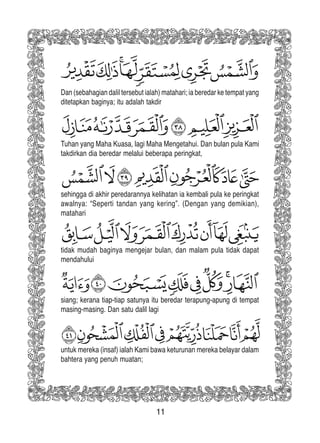 وَٱلشَّمْسُ تَجْرِى لِمُسْتَقَرٍّ لَّهَآ ۚ ذَٰلِكَ تَقْدِيرُ
Dan (sebahagian dalil tersebut ialah) matahari; ia beredar ke tempat yang
ditetapkan baginya; itu adalah takdir
ٱلْعَزِيزِ ٱلْعَلِيمِ ٣٨ وَٱلْقَمَرَ قَدَّرْنَٰهُ مَنَازِلَ
Tuhan yang Maha Kuasa, lagi Maha Mengetahui. Dan bulan pula Kami
takdirkan dia beredar melalui beberapa peringkat,
حَتَّىٰ عَادَ كَٱلْعُرْجُونِ ٱلْقَدِيمِ ٣٩ لَا ٱلشَّمْسُ
sehingga di akhir peredarannya kelihatan ia kembali pula ke peringkat
awalnya: “Seperti tandan yang kering”. (Dengan yang demikian),
matahari
يَنۢبَغِى لَهَآ أَن تُدْرِكَ ٱلْقَمَرَ وَلَا ٱلَّيْلُ سَابِقُ
tidak mudah baginya mengejar bulan, dan malam pula tidak dapat
mendahului
ٱلنَّهَارِ ۚ وَكُلٌّ فِى فَلَكٍ يَسْبَحُونَ ٤٠ وَءَايَةٌ
siang; kerana tiap-tiap satunya itu beredar terapung-apung di tempat
masing-masing. Dan satu dalil lagi
لَّهُمْ أَنَّا حَمَلْنَا ذُرِّيَّتَهُمْ فِى ٱلْفُلْكِ ٱلْمَشْحُونِ ٤١
untuk mereka (insaf) ialah Kami bawa keturunan mereka belayar dalam
bahtera yang penuh muatan;
11